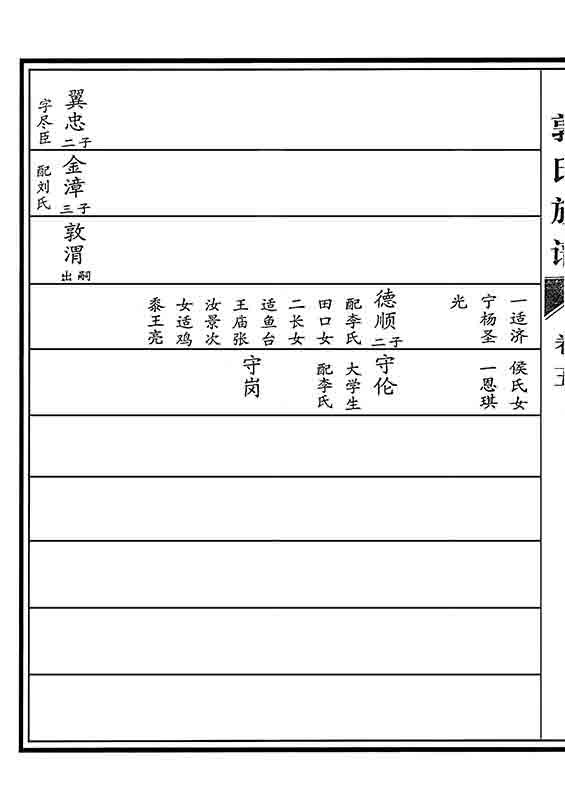 郭氏族谱
卷五
翼忠
二子
字尽臣
金漳
三子
配刘氏
敦渭
出嗣
一适济
宁杨圣
光
德顺
二子
配李氏
田口女
二长女
适鱼台
王庙张
汝景次
女适鸡
黍王亮
侯氏女
一恩琪
守伦
大学生
配李氏
守岗